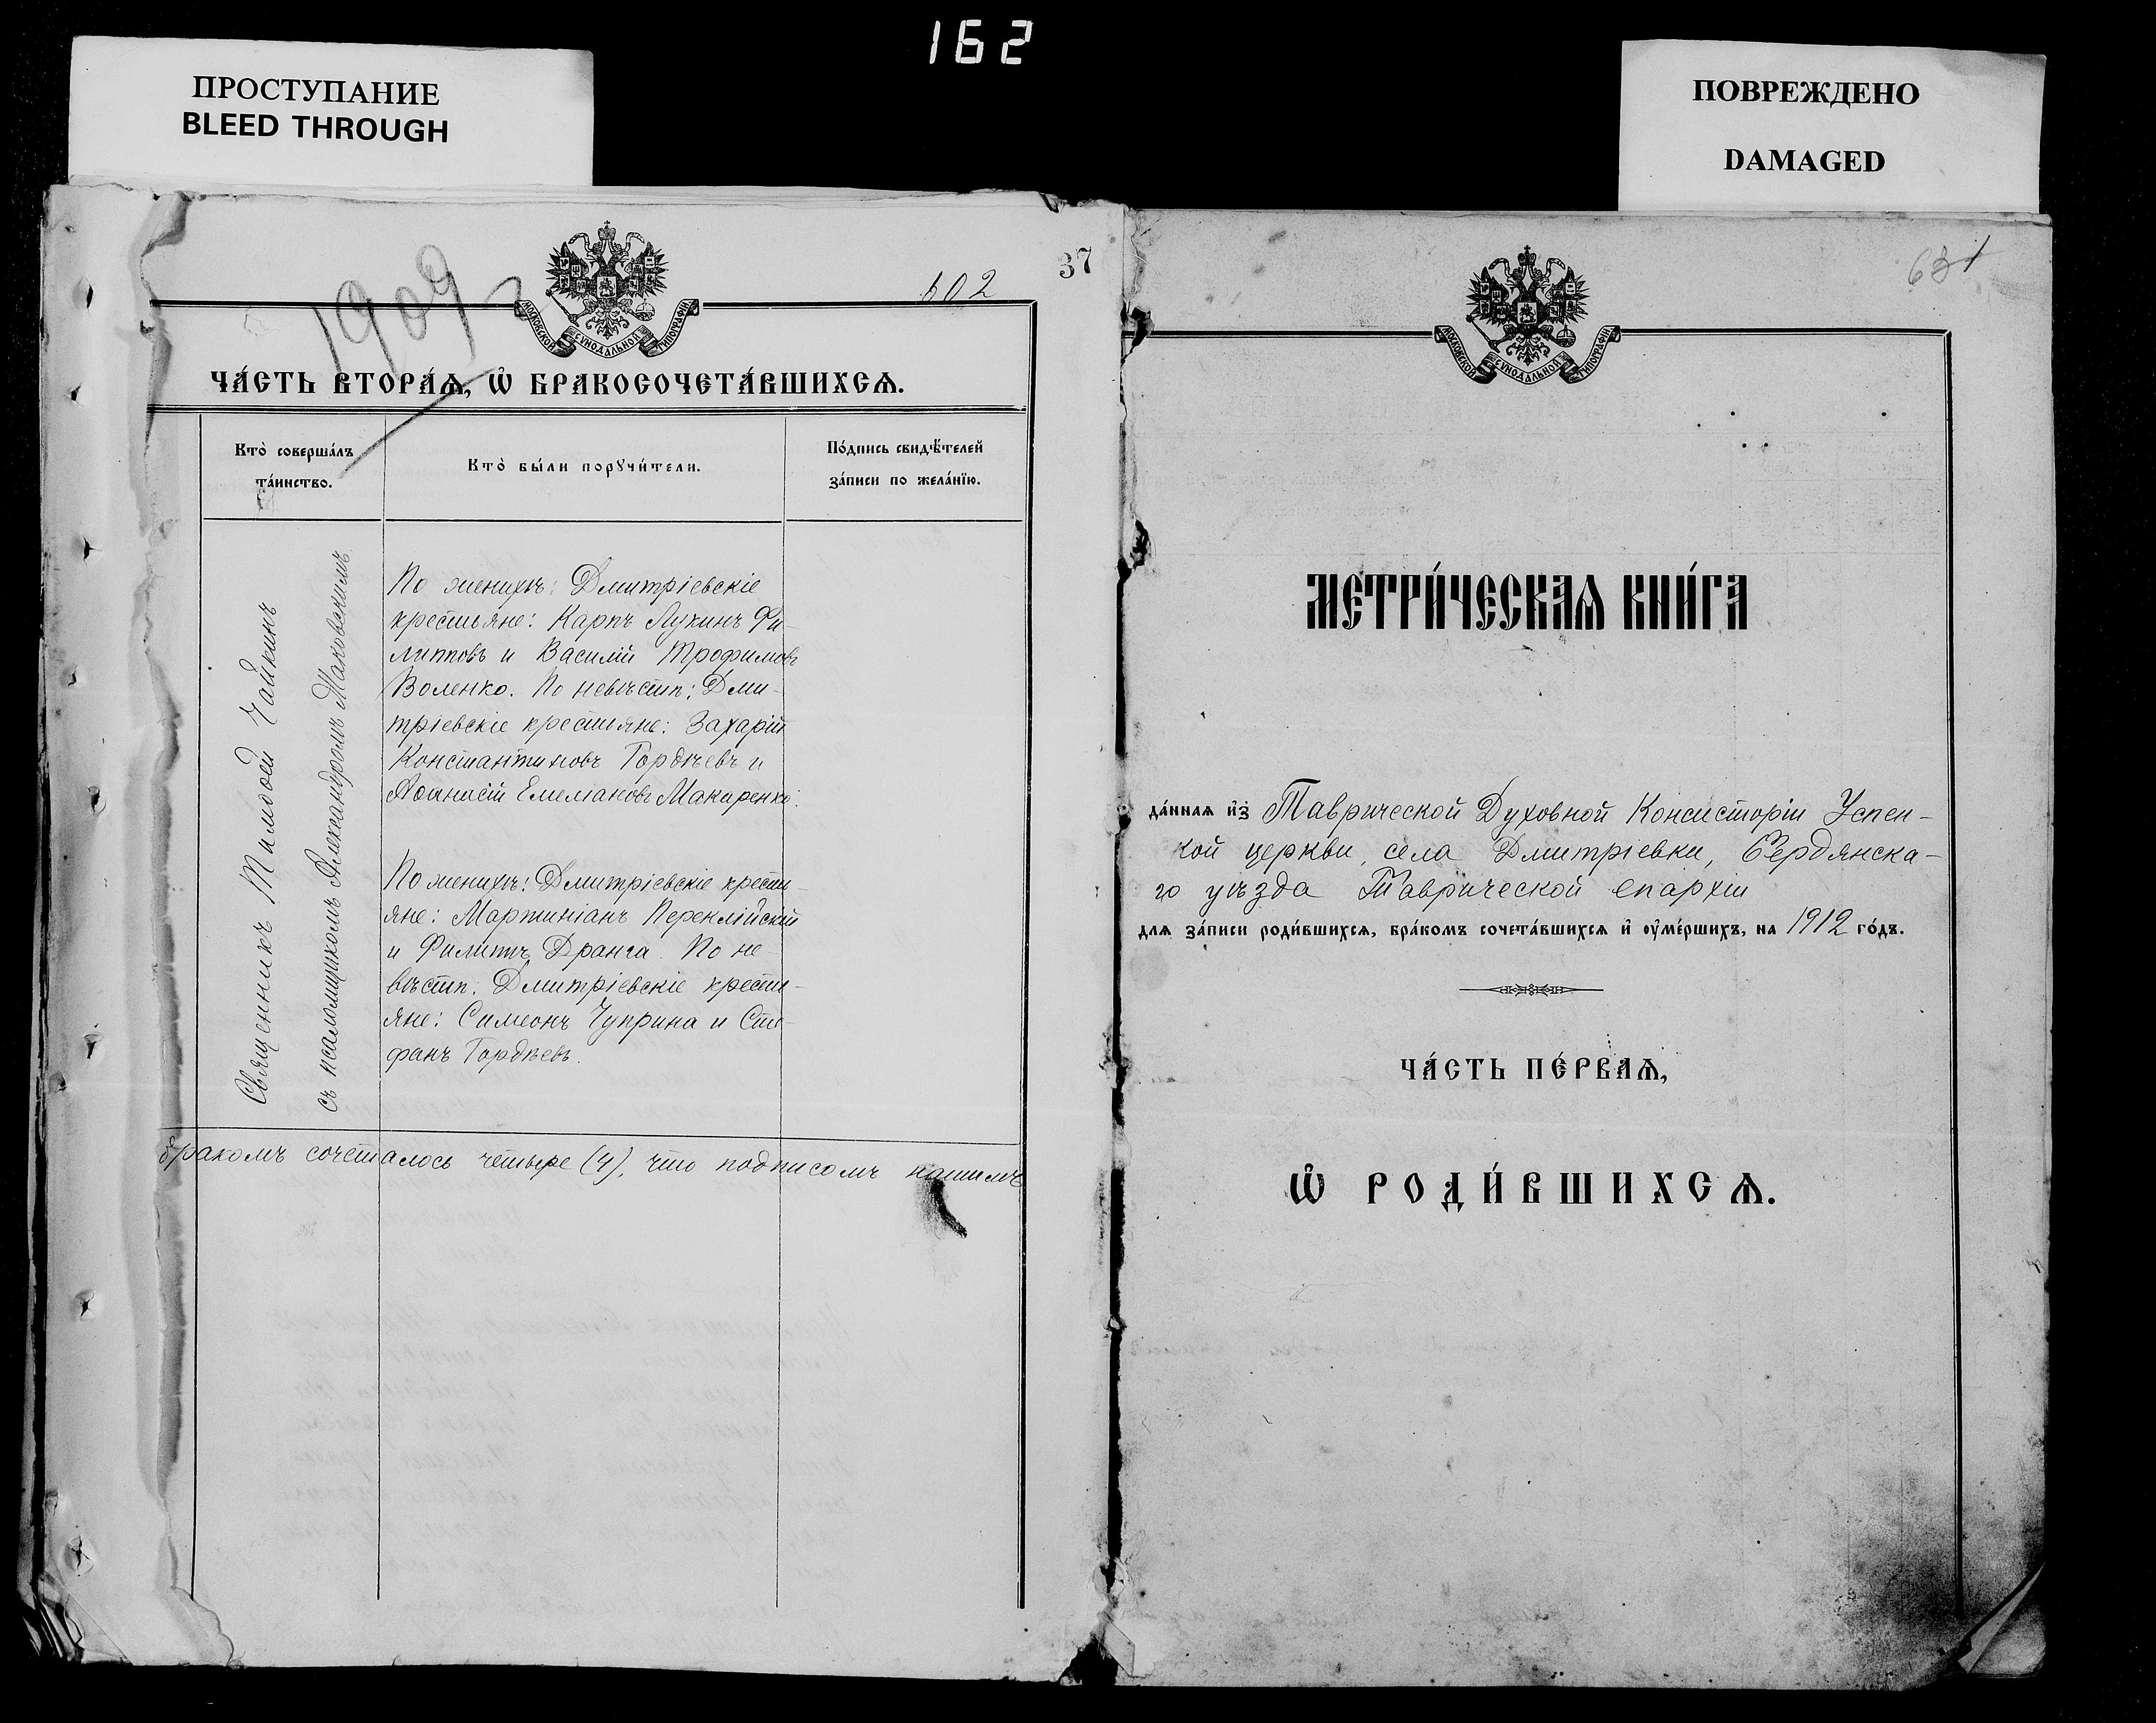 162
ПРОСТУПАНИЕ
BLEED THROUGH
ПОВРЕЖДЕНО
DAMAGED
1909
602
37
МОСКОВСКОЙ СѴНОДАЛЬНОЙ ТИПОГРАФІИ
ЧА́СТЬ ВТОРА́Ѧ, Ѽ БРАКОСОЧЕТА́ВШИХСѦ.
Кто̀ соверша́лъ
та́инство.
Кто̀ бы́ли порꙋчи́тели.
По́дпись свидѣ́телей
за́писи по жела́нїю.
Священникъ Тимоѳей Чайкинъ
съ псаломщикомъ Александромъ Маковскимъ
По женихѣ: Дмитріевскіе
крестьяне: Карпъ Лукинъ Фи-
липповъ и Василій Трофимовъ
Воленко. По невѣстѣ: Дми-
тріевскіе крестьяне: Захарій
Константиновъ Гордѣевъ и
Аѳанасій Емельяновъ Макаренко.
По женихѣ: Дмитріевскіе кресть-
яне: Мартиніанъ Переклійскій
и Филиппъ Дранга. По не-
вѣстѣ: Дмитріевскіе кресть-
яне: Симеонъ Чуприна и Сте-
фанъ Гордѣевъ.
бракомъ сочеталось четыре (4), что подписомъ нашимъ
МОСКОВСКОЙ СѴНОДАЛЬНОЙ ТИПОГРАФІИ
МЕТРИ́ЧЕСКАѦ КНИ́ГА
да́ннаѧ и҆з̾ Таврической Духовной Консисторіи Успен-
кой церкви, села Дмитріевки, Бердянска-
го уѣзда Таврической епархіи
длѧ за́писи роди́вшихсѧ, бра́комъ сочета́вшихсѧ и҆ ᲂу҆ме́ршихъ, на 1912 го́дъ.
ЧА́СТЬ ПЕ́РВАѦ,
Ѽ РОДИ́ВШИХСѦ.